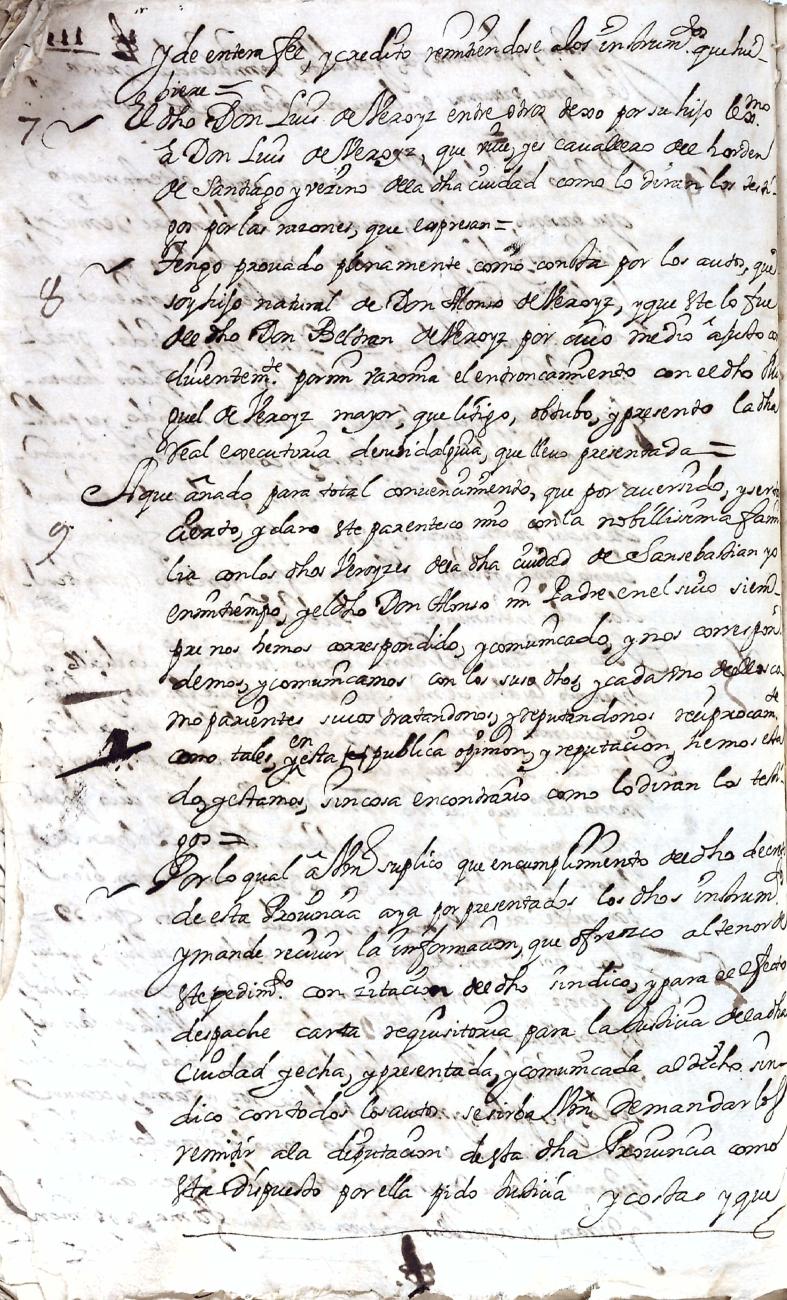 y de entera fee, y credito remitiendose a los instrum.tos que hu-
biere =
7 El dho Don Luis de Veroyz entre otros dexo por su hijo lex.mo
a Don Luis de Veroyz, que vive, y es cavallero del horden
de Santiago y vezino de la dha ciudad como lo diran los testi-
gos por las razones, que expresan =
8 Tengo provado plenamente como consta por los autos, que
soy hijo natural de Don Alonso de Veroyz, y que este lo fue
del dho Don Beltran de Veroyz por cuio medio
por mi varonia el entroncamiento con el dho Mi
guel de Veroyz mayor, que litigo, obtubo, y presento la dha
Real executoria de su hidalguia, que llevo presentada =
9 A que añado para total convencimiento, que por aver sido, y ser
cierto, y claro este parentesco mio con la nobillissima fami
lia con los dhos Veroyzes de la dha ciudad de San sebastian yo
en mi tiempo, y el dho Don Alonso mi Padre en el suio siem-
pre nos hemos correspondido, y comunicado, y nos correspon
demos, y comunicamos con los suso dhos, y cada uno de ellos co
mo parientes suios tratandonos, y reputandonos reciprocam.te
como tales, y en esta publica opinion, y reputacion, hemos esta
do, y estamos, sin cosa en contrario como lo diran los testi
gos =
Por lo qual a Vm suplico que en cumplimiento del dho decreto
de esta Provincia aya por presentados los dhos instrum.tos
y mande recivir la informacion, que ofrezco al tenor de
este pedim.to con zitacion del dho sindico, y para el efecto
despache carta requisitoria para la Justicia de la dha
Ciudad y echa, y presentada, y comunicada al dicho sin-
dico con todos los autos se sirba Vm de mandarlos
remitir a la diputacion de esta dha Provincia como
esta dispuesto por ella pido Justicia y costas y que